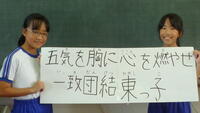 五気を胸に心を燃やせ
一致団結東っ子